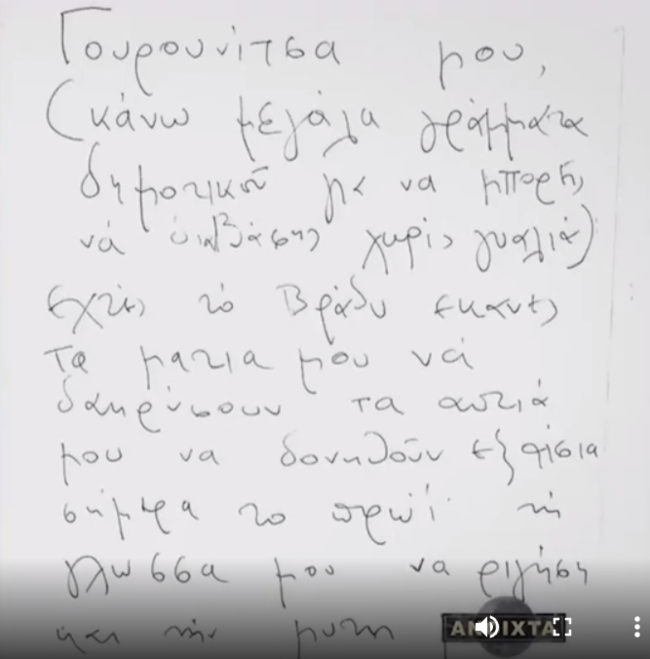 Γουρουνίτσα μου,
(κάνω μεγάλα γράμματα
δημοτικοῦ γιὰ να μπορῆς
νά διαβάσης χωρίς γυαλιά)
Εχτές τό Βράδυ έκανες
Τα ματια μου νά
δακρύσουν τα αυτιά
μου να δονηθοῦν εξαίσια
σήμερα το πρωΐ τή
γλωσσα μου να ριγήση
και τήν μυτη
ΑΝΟΙΧΤΑ